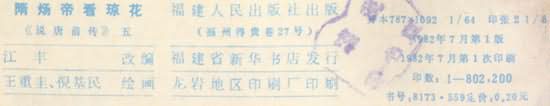 隋炀帝看琼花
《说唐前传》五
江丰 改编
王重圭、倪基民 绘画
福建人民出版社出版
(福州得贵巷27号)
福建省新华书店发行
龙岩地区印刷厂印刷
开本787×1092 1/64 印张2
1982年7月第1版
1982年7月第1次印刷
印数:1—802,200
书号:8173·559定价:0.20元